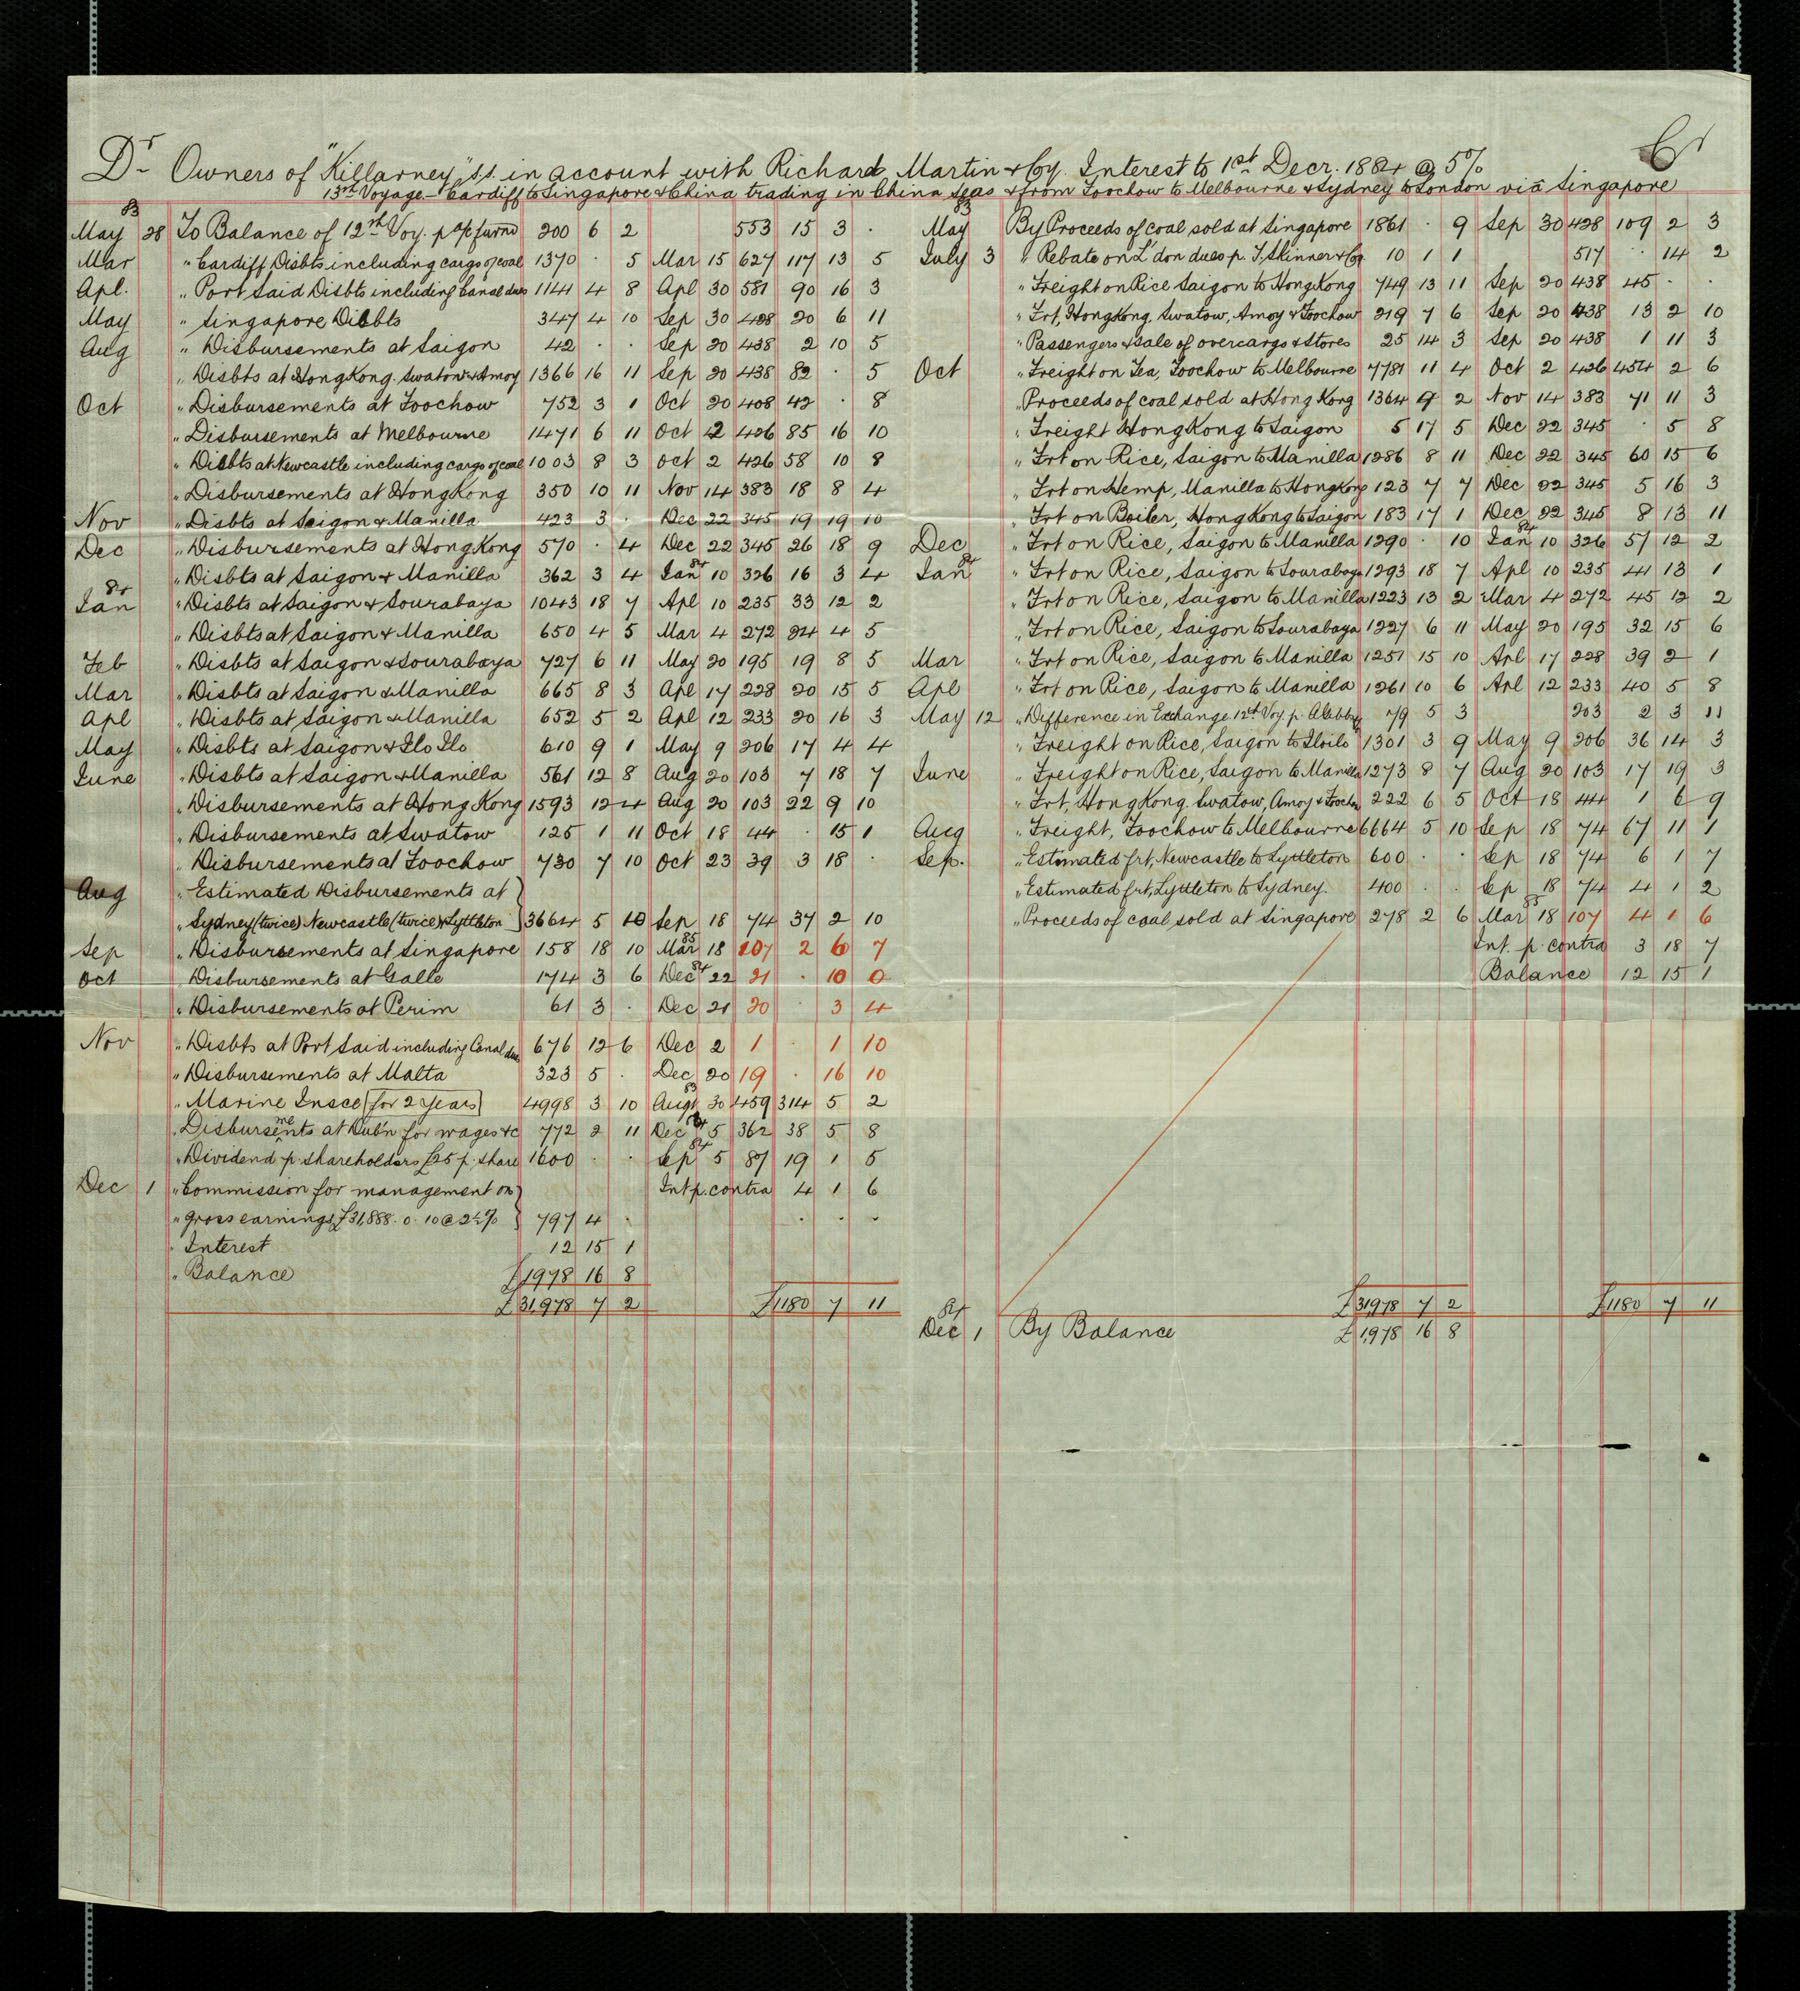 Dr Owners of "Killarney" s.s. in account with Richard Martin & Cy. Interest to 1st Decr. 1884 @ 5% Cr
13th Voyage - Cardiff to Singapore & China trading in China Seas & from Foochow to Melbourne & Sydney to London via Singapore
83
May 28 To Balance of 12th Voy. p a/c furnd 200 6 2 553 15 3 ·
Mar " Cardiff Disbts including cargo of coal 1370 · 5 Mar 15 627 117 13 5
Apl. " Port Said Disbts including Canal dues 1141 4 8 Apl 30 581 90 16 3
May " Singapore Disbts 347 4 10 Sep 30 428 20 6 11
Aug " Disbursements at Saigon 42 · · Sep 20 438 2 10 5
" Disbts at Hong Kong. Swatow & Amoy 1366 16 11 Sep 20 438 82 · 5
Oct " Disbursements at Foochow 752 3 1 Oct 20 408 42 · 8
" Disbursements at Melbourne 1471 6 11 Oct 2 426 85 16 10
" Disbts at Newcastle including cargo of coal 1003 8 3 Oct 2 426 58 10 8
" Disbursements at Hong Kong 350 10 11 Nov 14 383 18 8 4
Nov " Disbts at Saigon & Manilla 423 3 · Dec 22 345 19 19 10
Dec " Disbursements at Hong Kong 570 · 4 Dec 22 345 26 18 9
" Disbts at Saigon & Manilla 362 3 4 Jan 84 10 326 16 3 4
84
Jan " Disbts at Saigon & Sourabaya 1043 18 7 Apl 10 235 33 12 2
" Disbts at Saigon & Manilla 650 4 5 Mar 4 272 24 4 5
Feb " Disbts at Saigon & Sourabaya 727 6 11 May 20 195 19 8 5
Mar " Disbts at Saigon & Manilla 665 8 3 Apl 17 228 20 15 5
Apl " Disbts at Saigon & Manilla 652 5 2 Apl 12 233 20 16 3
May " Disbts at Saigon & Ilo Ilo 610 9 1 May 9 206 17 4 4
June " Disbts at Saigon & Manilla 561 12 8 Aug 20 103 7 18 7
" Disbursements at Hong Kong 1593 12 4 Aug 20 103 22 9 10
" Disbursements at Swatow 125 1 11 Oct 18 44 · 15 1
" Disbursements at Foochow 730 7 10 Oct 23 39 3 18 ·
Aug " Estimated Disbursements at
" Sydney (twice) Newcastle (twice) & Lyttleton 3664 5 10 Sep 18 74 37 2 10
Sep " Disbursements at Singapore 158 18 10 Mar 85 18 107 2 6 7
Oct " Disbursements at Galle 174 3 6 Dec 84 22 21 · 10 0
" Disbursements at Perim 61 3 · Dec 21 20 · 3 4
Nov " Disbts at Port Said including Canal dues 676 12 6 Dec 2 1 · 1 10
" Disbursements at Malta 323 5 · Dec 20 19 · 16 10
" Marine Insce [for 2 years] 4998 3 10 Augt 83 30 459 314 5 2
" Disbursements at Dub'n for wages &c 772 2 11 Dec 5 362 38 5 8
" Dividend p. shareholders £25 p. share 1600 · · Sep 84 5 87 19 1 5
Dec 1 " Commission for management on Int p. contra 4 1 6
" gross earnings £31,888. 0. 10 @ 2½% 797 4 · · · ·
" Interest 12 15 1
" Balance £1978 16 8
£31,978 7 2 £1180 7 11
83
May By Proceeds of coal sold at Singapore 1861 · 9 Sep 30 428 109 2 3
July 3 " Rebate on L'don dues p. T. Skinner & Co 10 1 1 517 · 14 2
" Freight on Rice Saigon to Hong Kong 749 13 11 Sep 20 438 45 · ·
" Frt, Hong Kong, Swatow, Amoy & Foochow 219 7 6 Sep 20 438 13 2 10
" Passengers & sale of overcargo & Stores 25 14 3 Sep 20 438 1 11 3
Oct " Freight on Tea, Foochow to Melbourne 7781 11 4 Oct 2 426 454 2 6
" Proceeds of coal sold at Hong Kong 1364 9 2 Nov 14 383 71 11 3
" Freight Hong Kong to Saigon 5 17 5 Dec 22 345 · 5 8
" Frt on Rice, Saigon to Manilla 1286 8 11 Dec 22 345 60 15 6
" Frt on Hemp, Manilla to Hong Kong 123 7 7 Dec 22 345 5 16 3
" Frt on Boiler, Hong Kong to Saigon 183 17 1 Dec 22 345 8 13 11
Dec " Frt on Rice, Saigon to Manilla 1290 · 10 Jan 84 10 326 57 12 2
Jan 84 " Frt on Rice, Saigon to Sourabaya 1293 18 7 Apl 10 235 41 13 1
" Frt on Rice, Saigon to Manilla 1223 13 2 Mar 4 272 45 12 2
" Frt on Rice, Saigon to Sourabaya 1227 6 11 May 20 195 32 15 6
Mar " Frt on Rice, Saigon to Manilla 1251 15 10 Apl 17 228 39 2 1
Apl " Frt on Rice, Saigon to Manilla 1261 10 6 Apl 12 233 40 5 8
May 12 " Difference in Exchange 12th Voy. p. 79 5 3 203 2 3 11
" Freight on Rice, Saigon to Iloilo 1301 3 9 May 9 206 36 14 3
June " Freight on Rice, Saigon to Manilla 1273 8 7 Aug 20 103 17 19 3
" Frt, Hong Kong. Swatow, Amoy & Foochow 222 6 5 Oct 18 44 1 6 9
Aug " Freight, Foochow to Melbourne 6664 5 10 Sep 18 74 67 11 1
Sep. " Estimated frt, Newcastle to Lyttleton 600 · · Sep 18 74 6 1 7
" Estimated frt, Lyttleton to Sydney. 400 · · Sep 18 74 4 1 2
" Proceeds of coal sold at Singapore 278 2 6 Mar 85 18 107 4 1 6
Int. p. contra 3 18 7
Balance 12 15 1
£31,978 7 2 £1180 7 11
84
Dec 1 By Balance £1,978 16 8